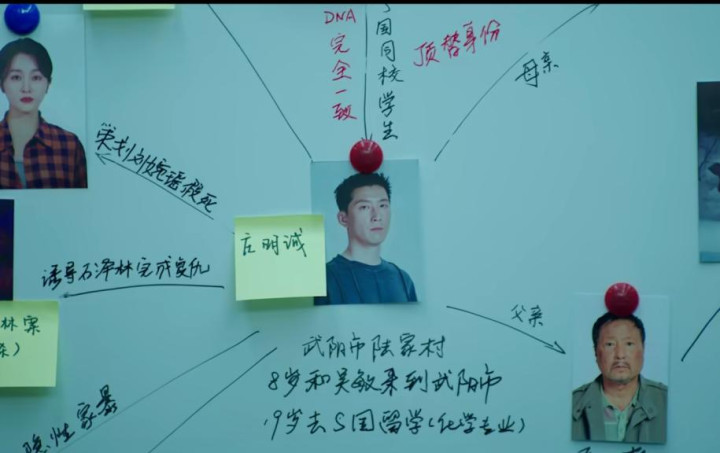 DNA完全一致
国同校学生
顶替身份
母亲
策划刘婉瑶投死
庄明诚
诱导石泽林完成复仇
林案
杀）
父亲
武阴市陆家村
8岁和吴敏来到武阴市
19岁去S国留学(化学专业)
隐性家暴